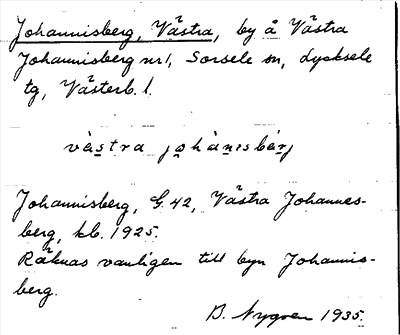 Johannisberg, Västra, by å Västra
Johannisberg nr 1, Sorsele sn, Lycksele
tg, Västerb. l.
västra johànisbárj
Johannisberg, G. 42, Västra Johannes-
berg, kb. 1925.
Räknas vanligen till byn Johannis-
berg.
B. Nygren 1935.